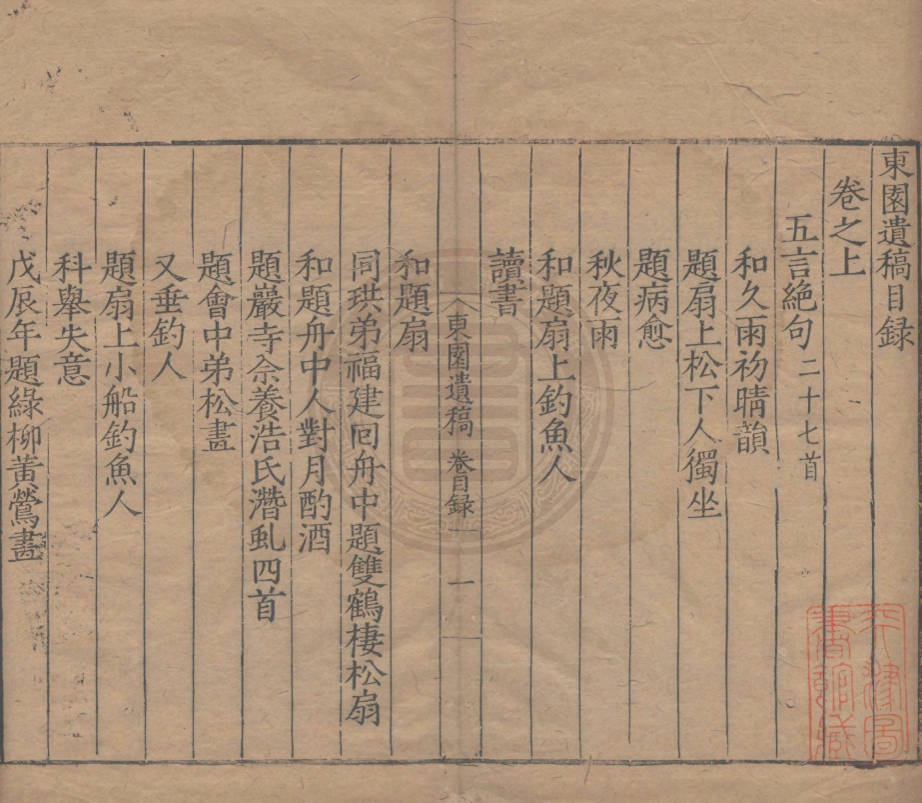 東園遺稿目録
卷之上
五言絶句 二十七首
和久雨初晴韻
題扇上松下人獨坐
題病愈
秋夜雨
和題扇上釣魚人
讀書
東園遺稿 卷目録 一
和題扇
同珙弟福建回舟中題雙鶴棲松扇
和題舟中人對月酌酒
題巖寺佘養浩氏潛虬四首
題會中弟松畫
又垂釣人
題扇上小船釣魚人
科舉失意
戊辰年題綠柳黃鶯畫